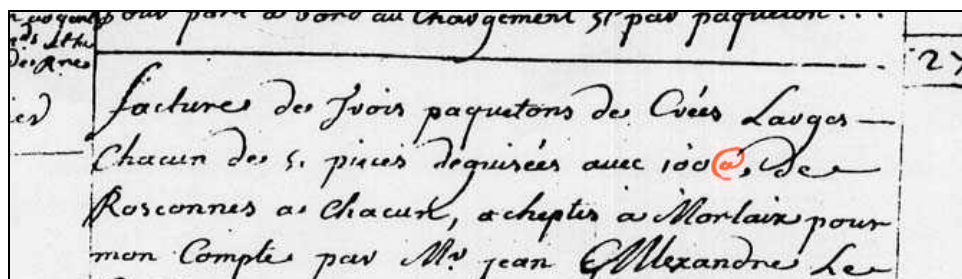 pour port a bord au Chargement 5# par paqueton...
27
facture de Trois paquetons de Crées Larges
Chacun de 5. pieces deguisées avec 100 @. de
Rosconnes a Chacun, acheptés a Morlaix pour
mon Compte par Mr. jean Allexandre Le